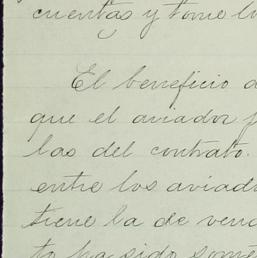 cuentas y tome lo
El beneficio d
que el aviador p
las del contrato.
entre los aviado
tiene la de vend
to ha sido some